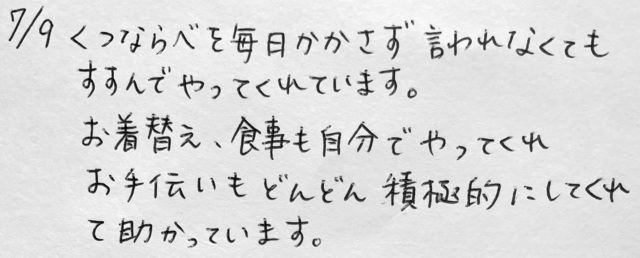 7/9 くつならべを毎日かかさず 言われなくても
すすんでやってくれています。
お着替え、食事も自分でやってくれ
お手伝いもどんどん 積極的にしてくれ
て助かっています。